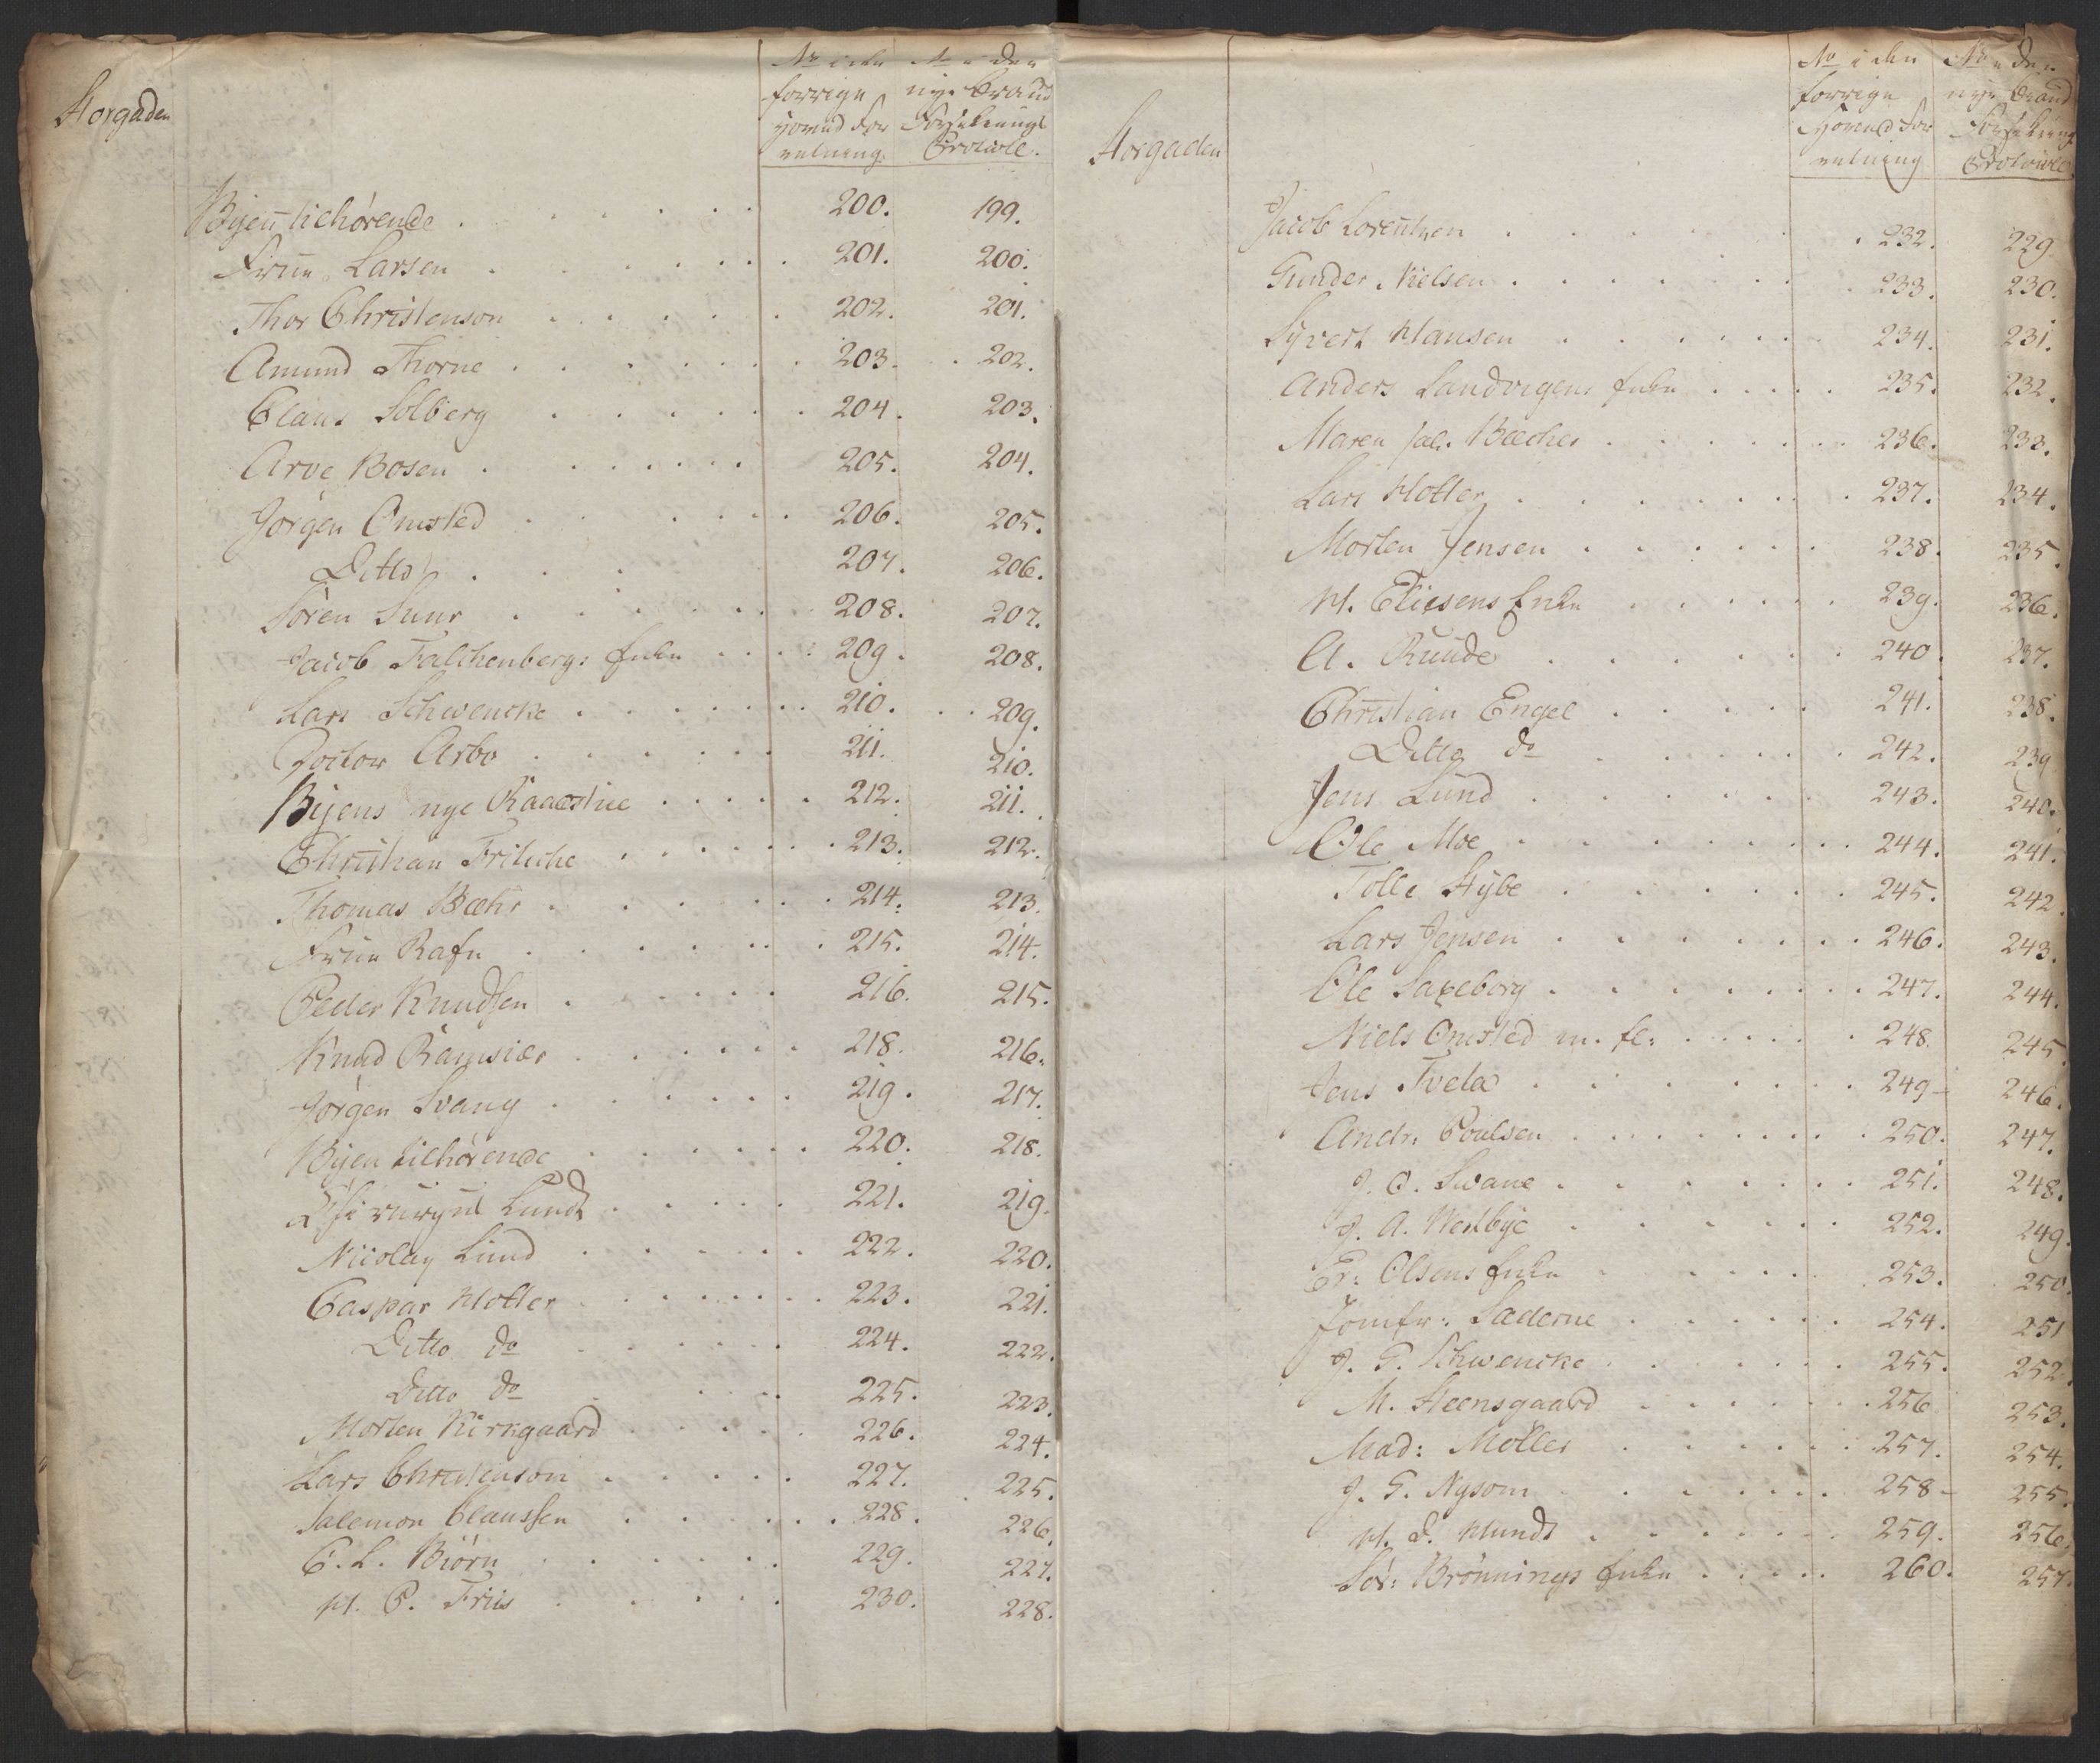 Storgaden
No i den No i den
forrige nye Brand
Hoved For Forsikrings
retning. Protocoll.
Byen tilhørende 200. 199.
Frue Larsen 201. 200.
Thor Christenson 202. 201.
Amund Thorne 203. 202.
Claus Solberg 204. 203.
Arve Bosen 205. 204.
Jørgen Omsted 206. 205.
Ditto 207. 206.
Søren Suur 208. 207.
Jacob Falchenbergs Enke 209. 208.
Lars Schwencke 210. 209.
Doctor Arbo 211. 210.
Byens nye Raaestue 212. 211.
Christian Fritsche 213. 212.
Thomas Bæhr 214. 213.
Frue Rafn 215. 214.
Peder Knudsen 216. 215.
Knud Ramsiær 218. 216.
Jørgen Svang 219. 217.
Byen tilhørende 220. 218.
Lundt 221. 219.
Nicolay Lund 222. 220.
Caspar Møller 223. 221.
Ditto do 224. 222.
Ditto do 225. 223.
Morten Kirkgaard 226. 224.
Lars Christenson 227. 225.
Salemon Claussen 228. 226.
C. L. Biørn 229. 227.
H. P. Friis 230. 228.
Storgaden
No i den No i den
forrige nye Brand
Hoved For Forsikrings
retning Protocoll
Jacob Lorentzen 232. 229
Gunder Nielsen 233. 230.
Syvert Hansen 234. 231.
Anders Landvigens Enke 235. 232.
Maren sal. Beecher 236. 233.
Lars Møller 237. 234.
Morten Jensen 238. 235.
H. Eliesens Enke 239. 236.
A. Ruude 240. 237.
Christian Engel 241. 238.
Ditto do 242. 239
Jens Lund 243. 240.
Ole Moe 244. 241.
Tolle Hybe 245. 242.
Lars Jensen 246. 243.
Ole Saxeborg 247. 244.
Niels Omsted m. fl: 248. 245.
Jens Tveta 249- 246.
Andr: Poulsen 250. 247.
J. O. Svane 251. 248.
J. A. Westbye 252. 249.
Er: Olsens Enke 253. 250.
Jomfr: Saderne 254. 251
J. G. Schwencke 255. 252.
M. Steensgaard 256 253.
Mad: Møller 257. 254.
J. G. Nysom 258- 255.
H. D. Mundt 259. 256.
Sør: Brønnings Enke 260. 257.